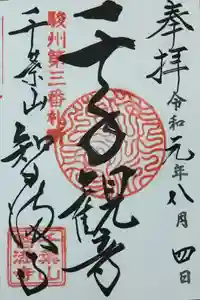 奉拝
令和元年八月四日
千手観音
駿州第三番札
千葉山智満寺